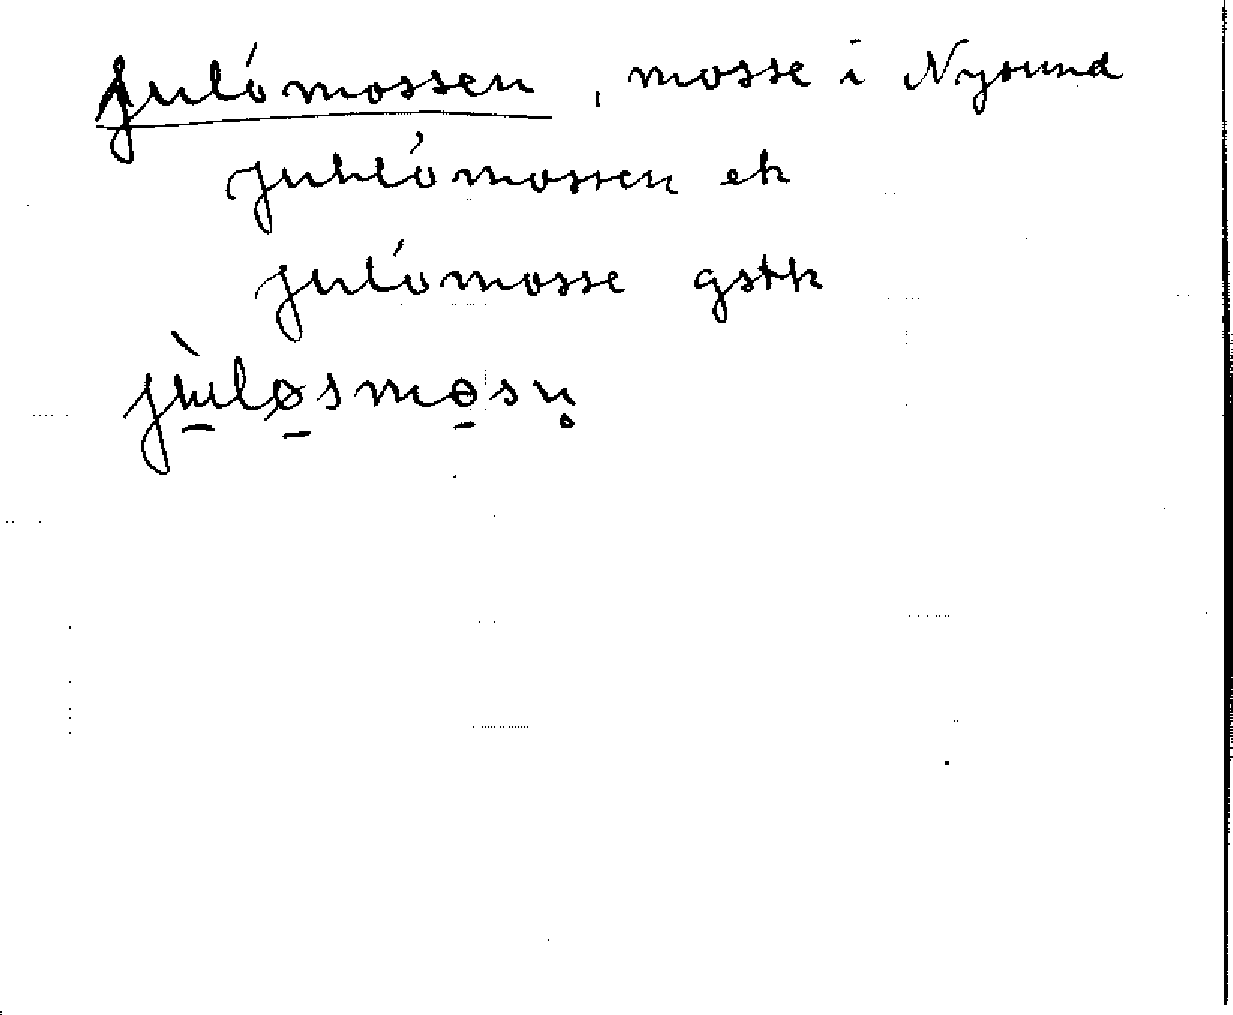 Julómossen, mosse i Nysund
Juhlómossen ek
Julómosse gstk
jùlǫsmosn̥